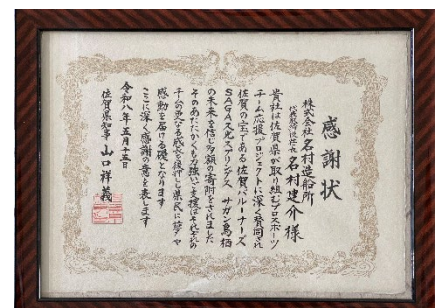 感謝状
株式会社名村造船所
代表取締役社長 名村建介 様
貴社は佐賀県が取り組むプロスポーツ
チーム応援プロジェクトに深く賛同され
佐賀の宝である佐賀バルーナーズ
SAGA久光スプリングス サガン鳥栖
の未来を信じ多額の寄附をされました
そのあたたかくも力強いご支援はそれぞれの
チームの更なる成長を後押しし県民に夢や
感動を届ける礎となります
ここに深く感謝の意を表します
令和八年五月十五日
佐賀県知事 山口祥義